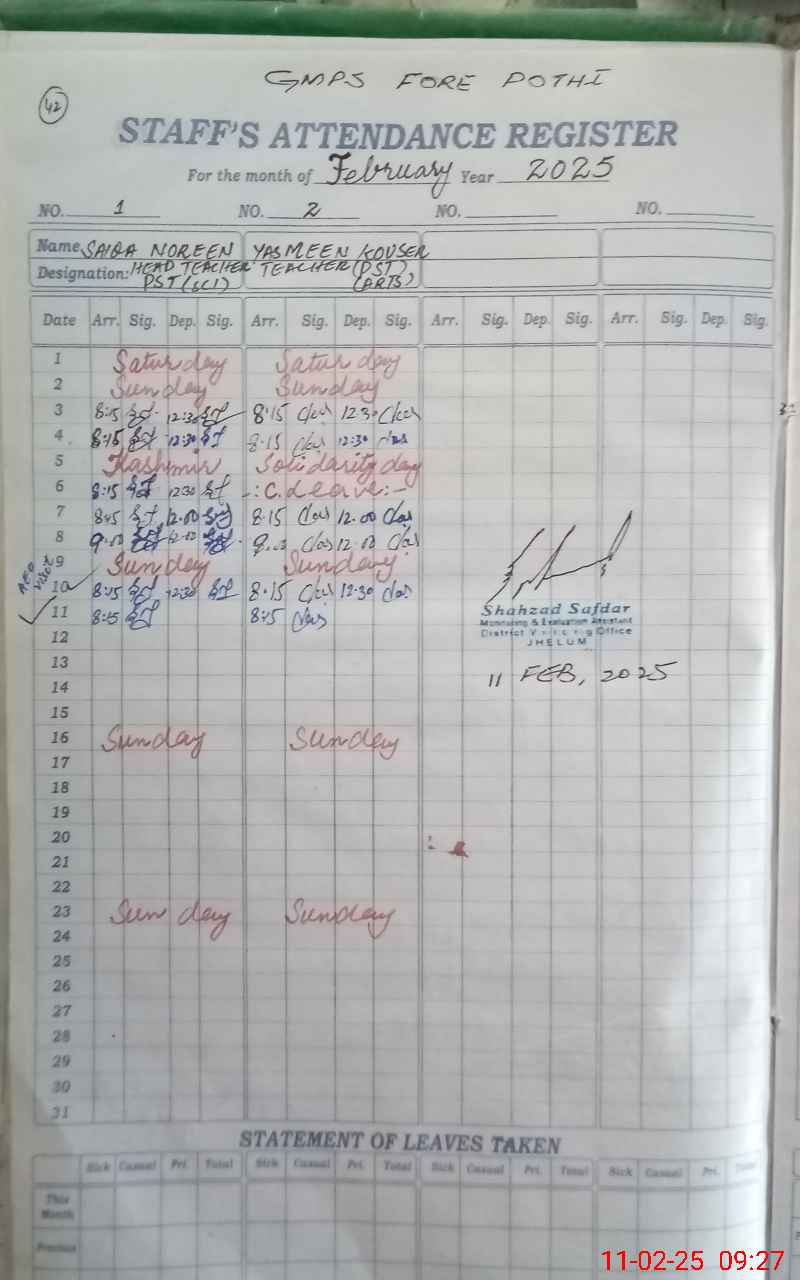 GMPS FORE POTHI
42
STAFF'S ATTENDANCE REGISTER
For the month of February Year 2025
NO. 1 NO. 2 NO. NO.
Name SAIQA NOREEN YASMEEN KOUSER
Designation: HEAD TEACHER TEACHER (PST)
PST (SCI) (ARTS)
Date Arr. Sig. Dep. Sig. Arr. Sig. Dep. Sig. Arr. Sig. Dep. Sig. Arr. Sig. Dep. Sig.
1 Saturday Saturday
2 Sunday Sunday
3 8:15 12:30 8:15 12:30
4 8:15 12:30 8:15 12:30
5 Kashmir Solidarity day
6 8:15 12:30 -:C.Leave:-
7 8:15 12.00 8:15 12.00
8 9.00 12.00 9.00 12.00
9 Sunday Sunday
AEO visit
10 8:15 12:30 8:15 12:30
11 8:15 8:15
Shahzad Safdar
Monitoring & Evaluation Assistant
District Office
JHELUM
12
13
11 FEB, 2025
14
15
16 Sunday Sunday
17
18
19
20
21
22
23 Sunday Sunday
24
25
26
27
28
29
30
31
STATEMENT OF LEAVES TAKEN
Sick Casual Pri. Total Sick Casual Pri. Total Sick Casual Pri. Total Sick Casual Pri. Total
This
Month
Previous
11-02-25 09:27